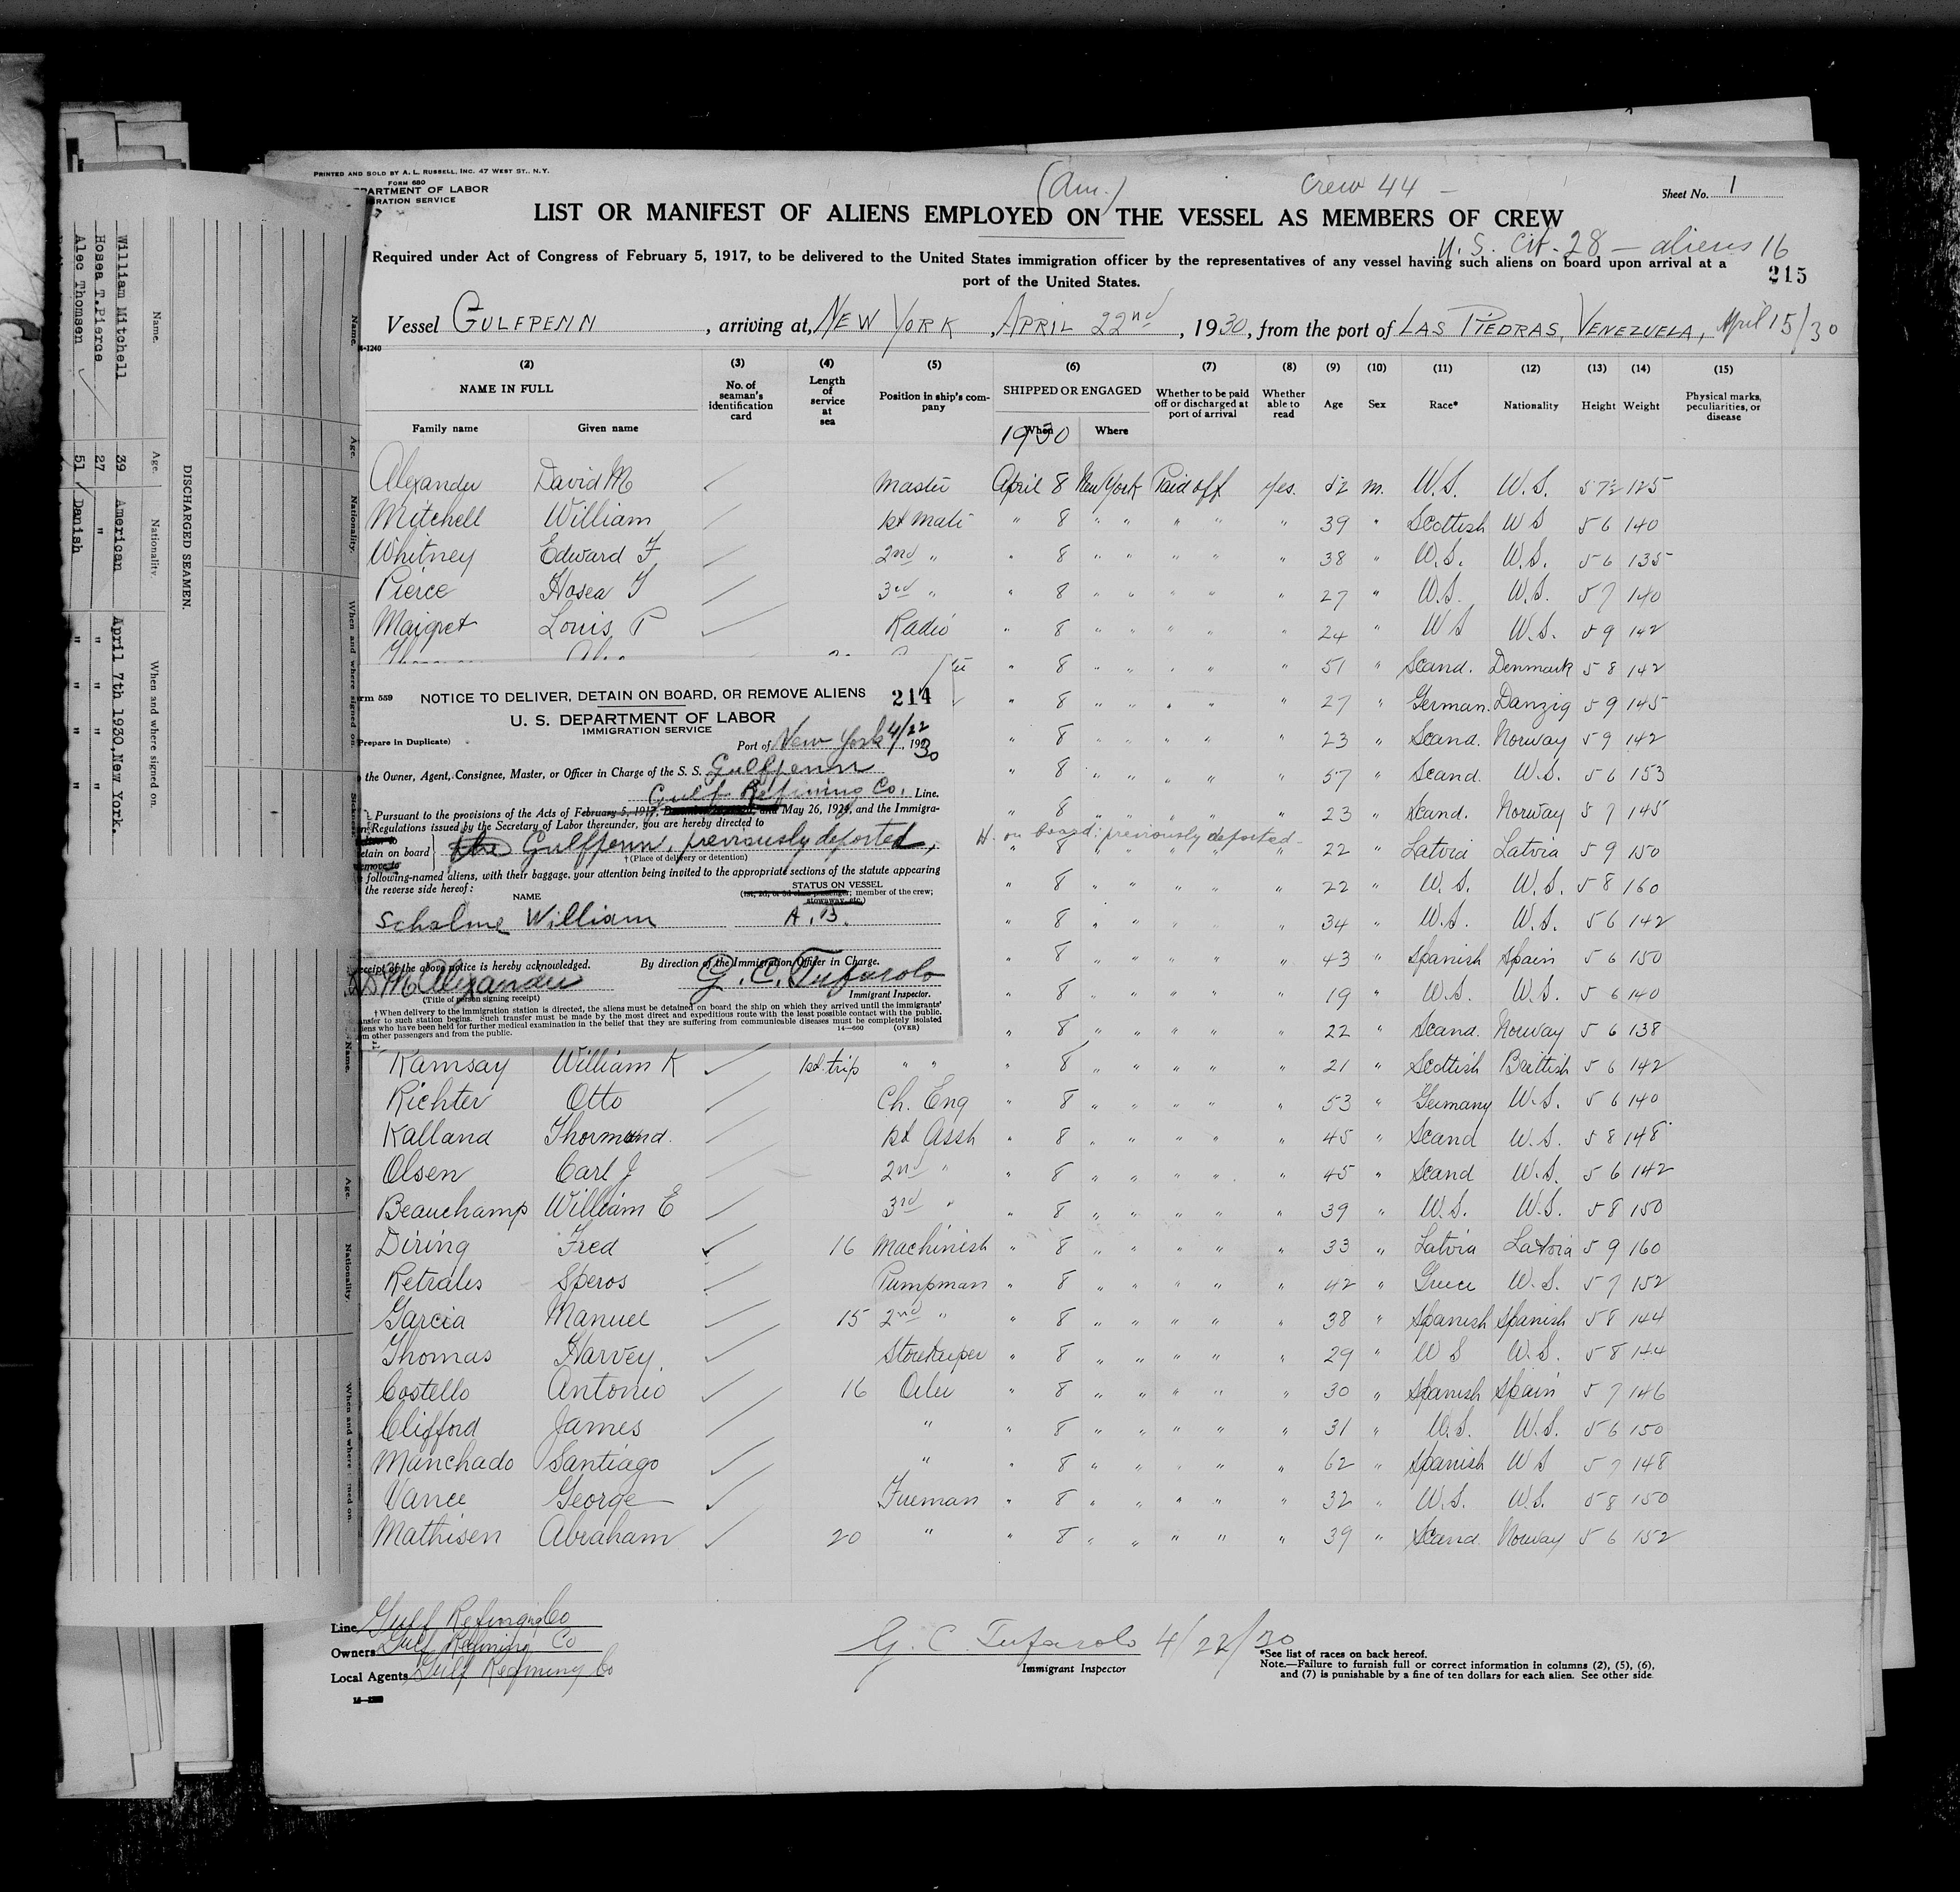 PRINTED AND SOLD BY A. L. RUSSELL, INC. 47 WEST ST., N. Y.
FORM 680
PARTMENT OF LABOR
RATION SERVICE
(Am.) Crew 44 —
Sheet No. 1
LIST OR MANIFEST OF ALIENS EMPLOYED ON THE VESSEL AS MEMBERS OF CREW
U. S. Cit. 28 — aliens 16
Required under Act of Congress of February 5, 1917, to be delivered to the United States immigration officer by the representatives of any vessel having such aliens on board upon arrival at a
port of the United States.
215
Vessel GULFPENN, arriving at, NEW YORK, APRIL 22nd, 1930, from the port of LAS PIEDRAS, VENEZUELA, April 15/30
(2) (3) (4) (5) (6) (7) (8) (9) (10) (11) (12) (13) (14) (15)
NAME IN FULL No. of seaman's identification card Length of service at sea Position in ship's company SHIPPED OR ENGAGED Whether to be paid off or discharged at port of arrival Whether able to read Age Sex Race* Nationality Height Weight Physical marks, peculiarities, or disease
Family name Given name When Where
1930
Alexander David M Master April 8 New York Paid off Yes. 52 m. U.S. U.S. 5 7½ 125
Mitchell William 1st Mate " 8 " " " " " 39 " Scottish U S 5 6 140
Whitney Edward F 2nd " " 8 " " " " " 38 " U.S. U.S. 5 6 135
Pierce Hosea T 3rd " " 8 " " " " " 27 " U.S. U.S. 5 7 140
Maigret Louis P Radio " 8 " " " " " 24 " U S U.S. 5 9 142
" 8 " " " " " 51 " Scand. Denmark 5 8 142
" 8 " " " " " 27 " German. Danzig 5 9 145
" 8 " " " " " 23 " Scand. Norway 5 9 142
" 8 " " " " " 57 " Scand. U.S. 5 6 153
" 8 " " " " " 23 " Scand. Norway 5 7 145
on board: previously deported
" 8 " " " " " 22 " Latvia Latvia 5 9 150
" 8 " " " " " 22 " U.S. U.S. 5 8 160
" 8 " " " " " 34 " U.S. U.S. 5 6 142
" 8 " " " " " 43 " Spanish Spain 5 6 150
" 8 " " " " " 19 " U.S. U.S. 5 6 140
" 8 " " " " " 22 " Scand. Norway 5 6 138
Form 559
NOTICE TO DELIVER, DETAIN ON BOARD, OR REMOVE ALIENS 214
U. S. DEPARTMENT OF LABOR
IMMIGRATION SERVICE
(Prepare in Duplicate)
Port of New York 4/22, 1930
the Owner, Agent, Consignee, Master, or Officer in Charge of the S. S. Gulfpenn
Gulf Refining Co. Line.
Pursuant to the provisions of the Acts of February 5, 1917, and May 26, 1924, and the Immigra-
n Regulations issued by the Secretary of Labor thereunder, you are hereby directed to
etain on board the Gulfpenn, previously deported,
† (Place of delivery or detention)
following-named aliens, with their baggage, your attention being invited to the appropriate sections of the statute appearing
the reverse side hereof:
NAME
STATUS ON VESSEL
(1st, 2d, or 3d class passenger, member of the crew;
stowaway, etc.)
Schalme William A.B.
eceipt of the above notice is hereby acknowledged. By direction of the Immigration Officer in Charge.
D M Alexander G. C. Tufarolo
(Title of person signing receipt) Immigrant Inspector.
† When delivery to the immigration station is directed, the aliens must be detained on board the ship on which they arrived until the immigrants'
ansfer to such station begins. Such transfer must be made by the most direct and expeditious route with the least possible contact with the public.
iens who have been held for further medical examination in the belief that they are suffering from communicable diseases must be completely isolated
m other passengers and from the public. 14—660 (OVER)
Ramsay William K 1st trip " " " 8 " " " " " 21 " Scottish Brittish 5 6 142
Richter Otto Ch. Eng " 8 " " " " " 53 " Germany U.S. 5 6 140
Kalland Thormund. 1st Asst " 8 " " " " " 45 " Scand U.S. 5 8 148
Olsen Carl J 2nd " " 8 " " " " " 45 " Scand U.S. 5 6 142
Beauchamp William E 3rd " " 8 " " " " " 39 " U.S. U.S. 5 8 150
Diring Fred 16 Machinist " 8 " " " " " 33 " Latvia Latvia 5 9 160
Retrales Speros Pumpman " 8 " " " " " 42 " Greece U.S. 5 7 152
Garcia Manuel 15 2nd " " 8 " " " " " 38 " Spanish Spanish 5 8 144
Thomas Harvey. Storekeeper " 8 " " " " " 29 " U S U.S. 5 8 144
Costello Antonio 16 Oiler " 8 " " " " " 30 " Spanish Spain 5 7 146
Clifford James " " 8 " " " " " 31 " U.S. U.S. 5 6 150
Manchado Santiago " " 8 " " " " " 62 " Spanish U S 5 7 148
Vance George Fireman " 8 " " " " " 32 " U.S. U.S. 5 8 150
Mathisen Abraham 20 " " 8 " " " " " 39 " Scand Norway 5 6 152
Line Gulf Refining Co
Owners Gulf Refining Co
Local Agents Gulf Refining Co
G. C. Tufarolo 4/22/30
Immigrant Inspector
*See list of races on back hereof.
Note.—Failure to furnish full or correct information in columns (2), (5), (6),
and (7) is punishable by a fine of ten dollars for each alien. See other side.
DISCHARGED SEAMEN.
Name. Age. Nationality When and where signed on.
William Mitchell 39 American April 7th 1930, New York.
Hosea T. Pierce 27 " " " " "
Alec Thomsen 51 Danish " " " "
Name. Age. Nationality. When and where signed on.
Name. Age. Nationality. When and where